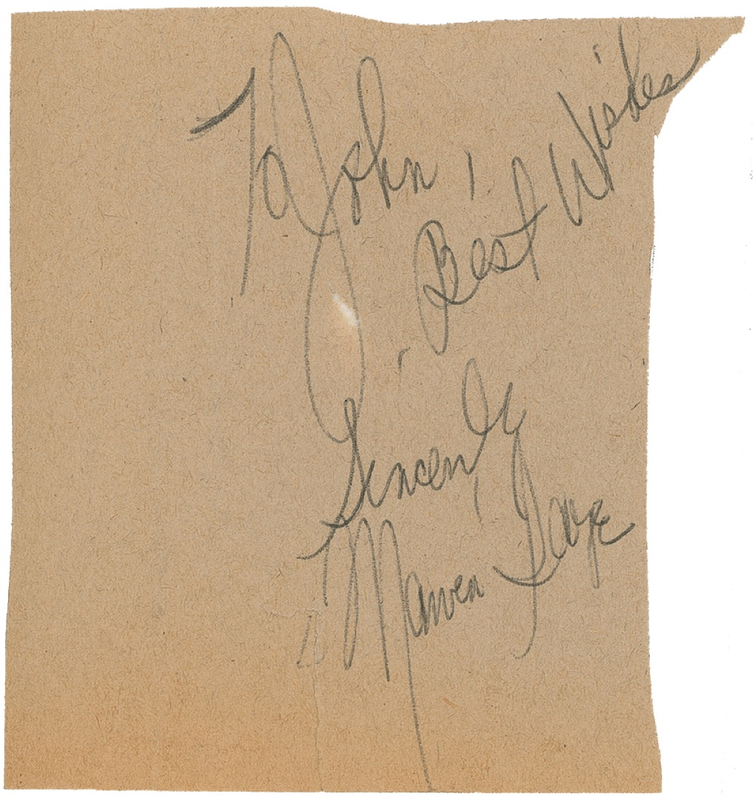 To John,
Best Wishes
Sincerely
Marvin Gaye